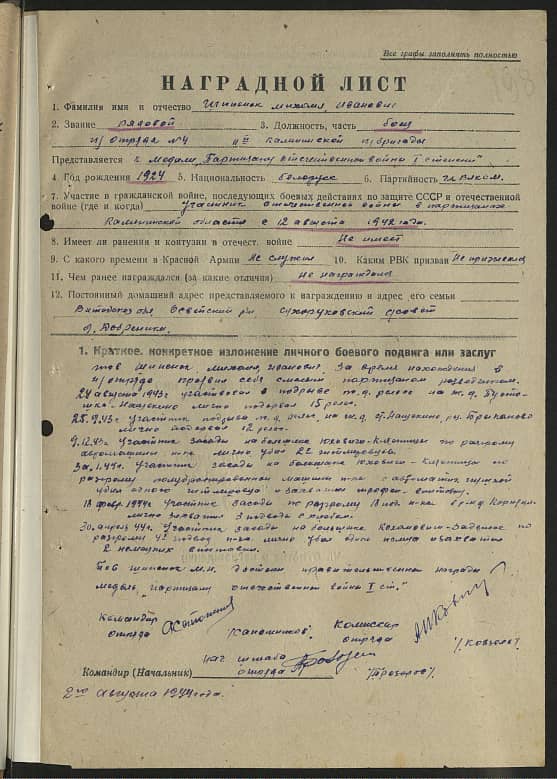 Все графы заполнять полностью
НАГРАДНОЙ ЛИСТ
1. Фамилия имя и отчество Шипенок Михаил Иванович
2. Звание рядовой 3. Должность, часть боец
п/отряда №4 Калининской п/бригады
Представляется к медали "Партизану отечественной войны I степени"
4. Год рождения 1924 5. Национальность белорус 6. Партийность чл. ВЛКСМ.
7. Участие в гражданской войне, последующих боевых действиях по защите СССР и отечественной
войне (где и когда) участник отечественной войны в партизанах
Калининской области с 12 августа 1942 года.
8. Имеет ли ранения и контузии в отечест. войне Не имеет
9. С какого времени в Красной Армии Не служил 10. Каким РВК призван Не призывался
11. Чем ранее награждался (за какие отличия) Не награждался
12. Постоянный домашний адрес представляемого к награждению и адрес его семьи
Витебская обл. район, совет
д.
1. Краткое, конкретное изложение личного боевого подвига или заслуг
тов Шипенок, Михаил Иванович. За время нахождения в
п/отряде проявил себя смелым партизаном
24 августа 1943г участвовал в подрыве ж.д. рельс на ж.д.
Нащекино лично подорвал 15 рельс.
25.9.43г участник подрыва ж.д. рельс на ж.д. ст. Нащекино,
лично подорвал 12 рельс.
9.12.43г Участник засады на большаке Юховичи-Клястицы по разгрому
автомашины п-ка лично убил 2х гитлеровцев.
3а.1.44г. Участник засады на большаке Юховичи-Клястицы по
разгрому машины п-ка с
убил одного гитлеровца и захватил трофеи винтовку.
18 февр. 1944г Участник засады по разгрому 18 под. п-ка в р-не
лично захватил 3 подводы с хлебом.
30 апреля 44г. Участник засады на большаке Кохановичи- по
разгрому подвод п-ка. лично убил одного немца и захватил
2 немецких винтовки.
Тов Шипенок М.И. Достоин правительственной награды
медаль "партизану отечественной войны I ст."
Командир
отряда
Комиссар
отряда
нач штаба
отряда
Командир (Начальник)
2го августа 1944 года.